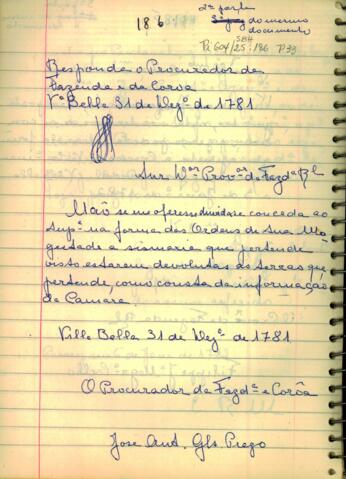 186
2ª parte
do mesmo
documento
SBH
Pi 604/25:186 P33
Responda o Procurador da
Fazenda e da Coroa
Vª Bella 31 de Dezº de 1781
Snr. Provºr da Fazdª Rl
Não se me oferese duvida se conceda ao
Supe na forma das Ordens de Sua Ma
gestade a sismaria que pertende
visto estarem devolutas as terras que
pertende, como consta da informação
da Camara
Villa Bella 31 de Dezº de 1781
O Procurador da Fazdª e Corôa
Jose Ant. Gls Prego